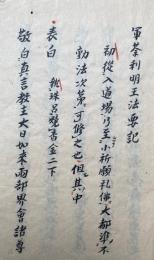 軍荼利明王法要記
初從入道場乃至小祈願礼佛大都準不
動法次第可修之也但其中
表白　執珠呂覽香金二下
敬白真言教主大日如来兩部界會諸尊